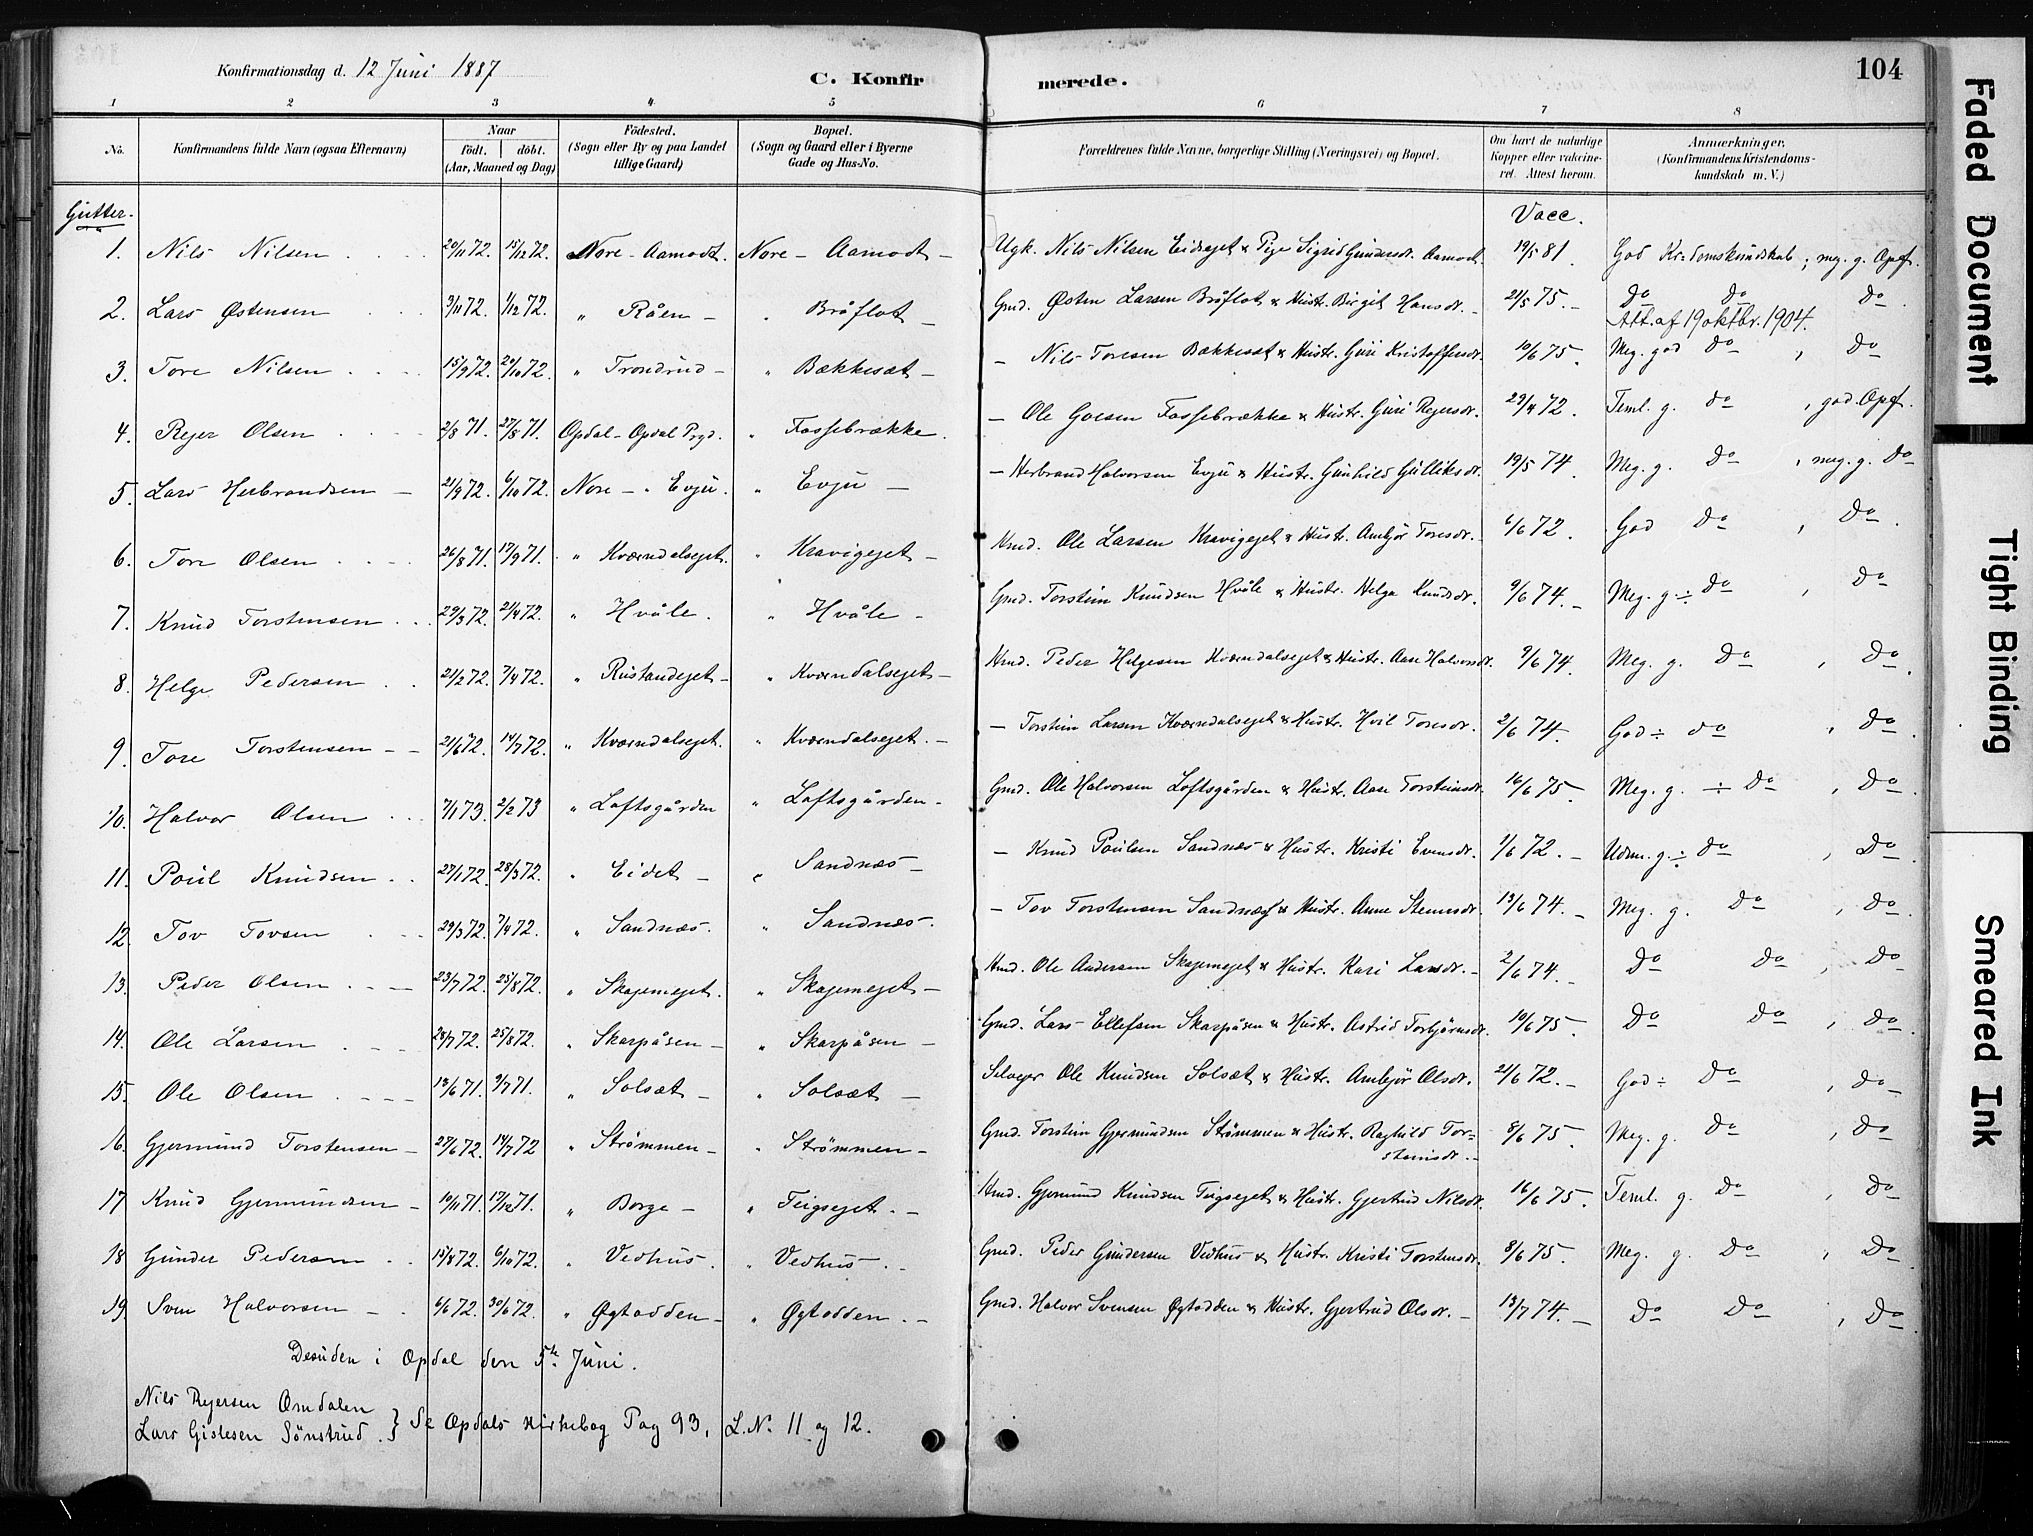 Konfirmationsdag d. 12 Juni 1887
C. Konfir merede. 104
1 2 3 4 5 6 7 8
No. Konfirmandens fulde Navn (ogsaa Efternavn) Naar födt. döbt. (Aar, Maaned og Dag) Födested. (Sogn eller By og paa Landet tillige Gaard) Bopæl. (Sogn og Gaard eller i Byerne Gade og Hus-No. Forældrenes fulde Navne, borgerlige Stilling (Næringsvei) og Bopæl. Om havt de naturlige Kopper eller vakcineret. Attest herom. Anmærkninger, (Konfirmandens Kristendomskundskab m. V.)
Gutter. Vacc.
1. Nils Nilsen 20/11 72. 15/12 72. Nore - Aamodt. Nore - Aamodt - Ugk. Nils Nilsen Eidsejet & Pige Sigrid Gundersdr. Aamodt. 19/5 81. God Kr=domskundskab ; meg. g. Opf.
2. Lars Østensen 3/11 72. 1/12 72. " Råen - " Bröflot - Gmd. Østen Larsen Bröflot & Hustr. Birgit Hansdr. - 21/5 75. - Do Do Do
Att. af 19 oktbr. 1904.
3. Tore Nilsen 15/9 72. 20/10 72. " Trondrud - " Bækkesæt - - Nils Toresen Bækkesæt & Hustr. Guri Kristoffersdr. 10/6 75. Meg. god do , Do
4. Rejer Olsen 2/8 71. 27/8 71. Opdal - Opdal Prgd. " Fossebrække. - Ole Goesen Fossebrække & Hustr. Guri Rejersdr. 29/4 72. Teml. g. do , god. Opf.
5. Lars Herbrandsen - 21/9 72. 6/10 72. Nore - " Evju. " Evju - - Herbrand Halvorsen Evju & Hustr. Gunhild Gulliksdr. 19/5 74. Meg. g. Do , meg. g. Do
6. Tore Olsen 26/8 71. 17/9 71. " Kværndalsejet. " Kravigejet - Hmd. Ole Larsen Kravigejet & Hustr. Ambjör Toresdr. - 6/6 72. God Do , Do
7. Knud Torstensen 29/3 72. 21/4 72. " Hvåle. " Hvåle - Gmd. Torstein Knudsen Hvåle & Hustr. Helga Knudsdr. 9/6 74. - Meg. g. ÷ Do , Do
8. Helge Pedersen 21/2 72. 7/4 72. " Rustandejet - " Kværndalsejet - Hmd. Peder Helgesen Kværndalsejet & Hustr. Aase Halvorsdr. 9/6 74. Meg. g. Do , Do
9. Tore Torstensen - - 21/6 72. 14/7 72. " Kværndalsejet. " Kværndalsejet. - - Torstein Larsen Kværndalsejet & Hustr. Hvil Toresdr. 2/6 74. God ÷ do , Do
10. Halvor Olsen 7/1 73. 2/2 73 " Loftsgården " Loftsgården - Gmd. Ole Halvorsen Loftsgården & Hustr. Aase Torsteinsdr. 16/6 75. Meg. g. ÷ Do , Do
11. Poul Knudsen 27/1 72. 28/3 72. " Eidet - " Sandnæs - - Knud Poulsen Sandnæs & Hustr. Kristi Evensdr. 1/6 72. - Udm. g. ÷ do , Do
12. Tov Tovsen 29/3 72. 7/4 72. " Sandnæs. " Sandnæs. - Tov Torstensen Sandnæs & Hustr. Anne Steensdr. 13/6 74. - Meg. g. Do , Do
13. Peder Olsen 23/7 72. 25/8 72. " Skajemejet. " Skajemejet - Hmd. Ole Andersen Skajemejet & Hustr. Kari Larsdr. - 2/6 74. Do Do , Do
14. Ole Larsen 28/7 72. 25/8 72. " Skarpåsen - " Skarpåsen - Gmd. Lars Ellefsen Skarpåsen & Hustr. Astrid Torbjörnsdr. 10/6 75. Do Do , Do
15. Ole Olsen 13/6 71. 9/7 71. " Solsæt - " Solsæt - Selvejer Ole Knudsen Solsæt & Hustr. Ambjör Olsdr. 21/6 72. - God ÷ Do , do
16. Gjermund Torstensen - 27/6 72. 14/7 72 " Strömmen - " Strömmen - Gmd. Torstein Gjermundsen Strömmen & Hustr. Raghild Tor= 8/6 75. Meg. g. Do , Do
steinsdr. -
17. Knud Gjermundsen - 10/11 71. 17/12 71. " Borge - " Teigsejet. - Hmd. Gjermund Knudsen Teigsejet & Hustr. Gjertrud Nilsdr. 16/6 75. Teml. g. Do , Do
18. Gunder Pedersen 15/8 72. 6/10 72. " Vedhus. " Vedhus. - Gmd. Peder Gundersen Vedhus & Hustr. Kristi Torstensdr. 8/6 75. Meg. g. Do , Do
19. Sven Halvorsen - 6/6 72. 30/6 72. " Øgtodden - " Øgtodden. - Gmd. Halvor Svensen Øgtodden & Hustr. Gjertrud Olsdr. - 13/7 74. - Do Do , Do
Desuden i Opdal den 5te Juni.
Nils Rejersen Omdalen
Lars Gislesen Sönstrud. } Se Opdals Kirkebog Pag 93, L. No 11 og 12.
Faded Document
Tight Binding
Smeared Ink